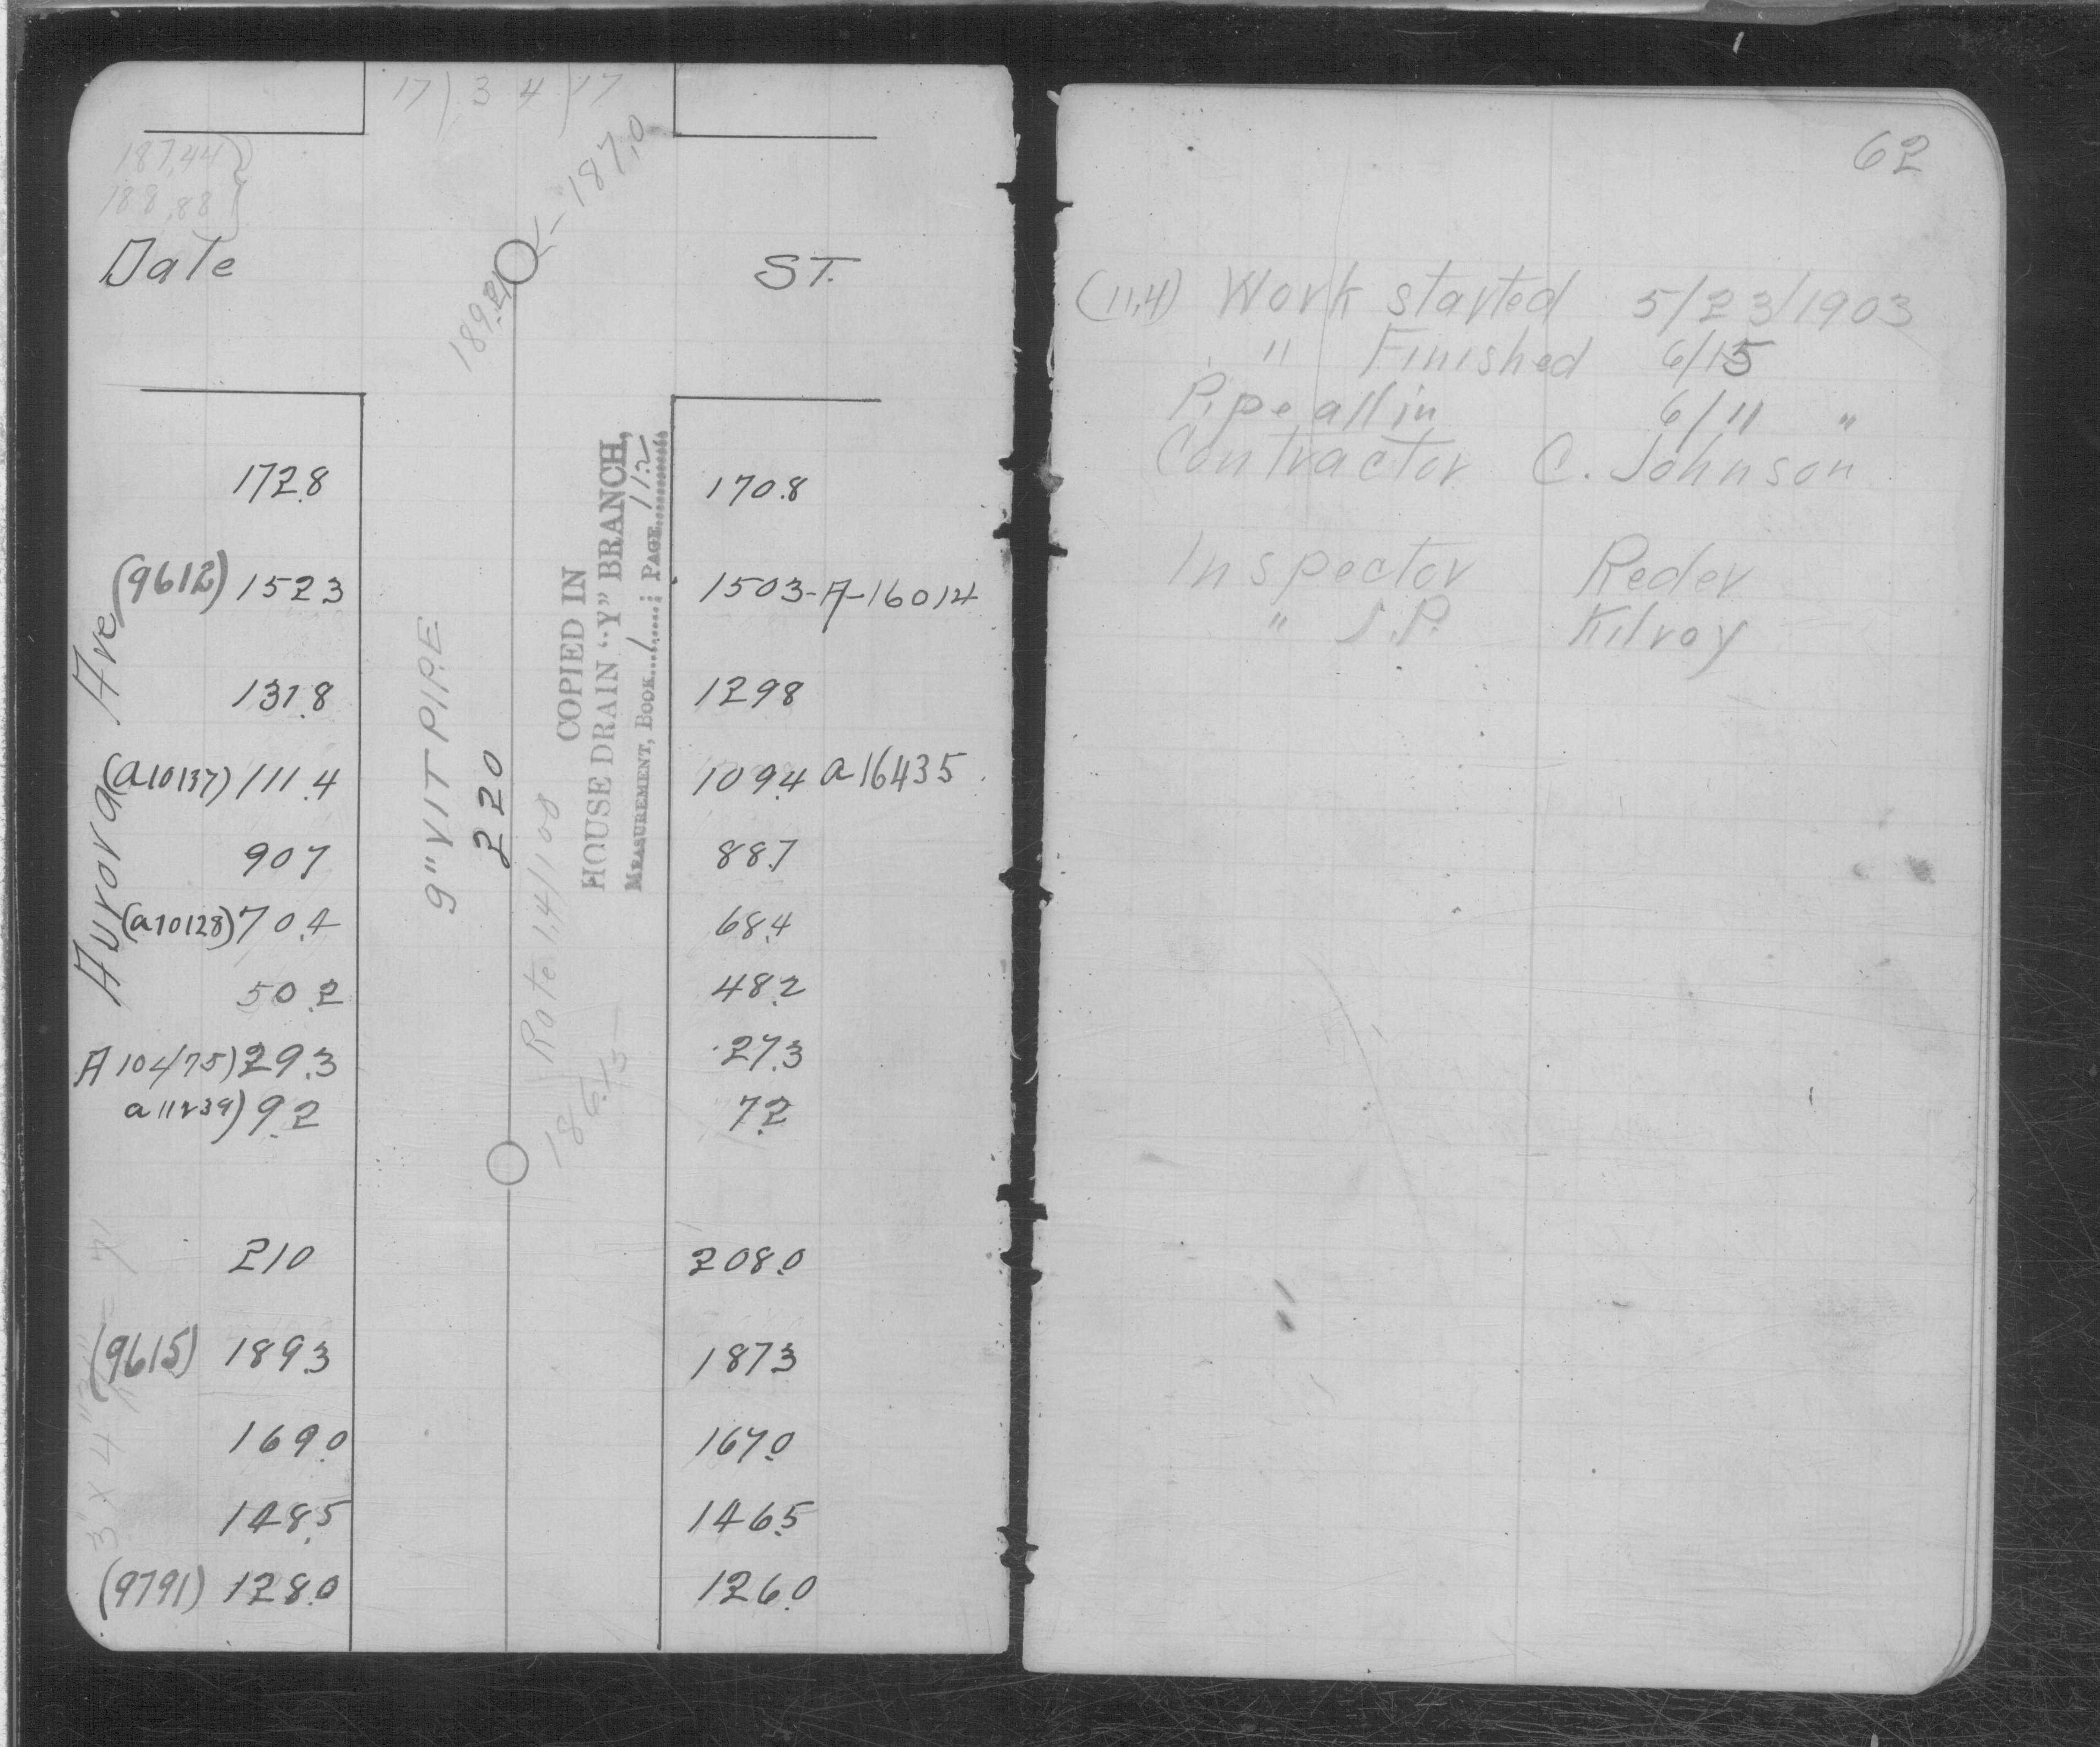 17 ) 3 4 ) 17
187.44
188.88
187.0
Date
ST.
189.21
172.8
170.8
(9612) 152.3
150.3 - A-16014
131.8
129.8
(a10137) 111.4
109.4 a 16435
90.7
88.7
(a10128) 70.4
68.4
50.2
48.2
A 10475) 29.3
27.3
a 11239) 9.2
7.2
Aurora Ave
9" VIT PIPE
220
Rate 1.4/100
186.45
COPIED IN
HOUSE DRAIN "Y" BRANCH,
MEASUREMENT, BOOK 1 ; PAGE 112
210
208.0
(9615) 189.3
187.3
169.0
167.0
148.5
146.5
(9791) 128.0
126.0
62
(11.4) Work started 5/23/1903
" Finished 6/15
Pipe all in 6/11 "
Contractor C. Johnson
Inspector Reder
" J.P. Kilroy